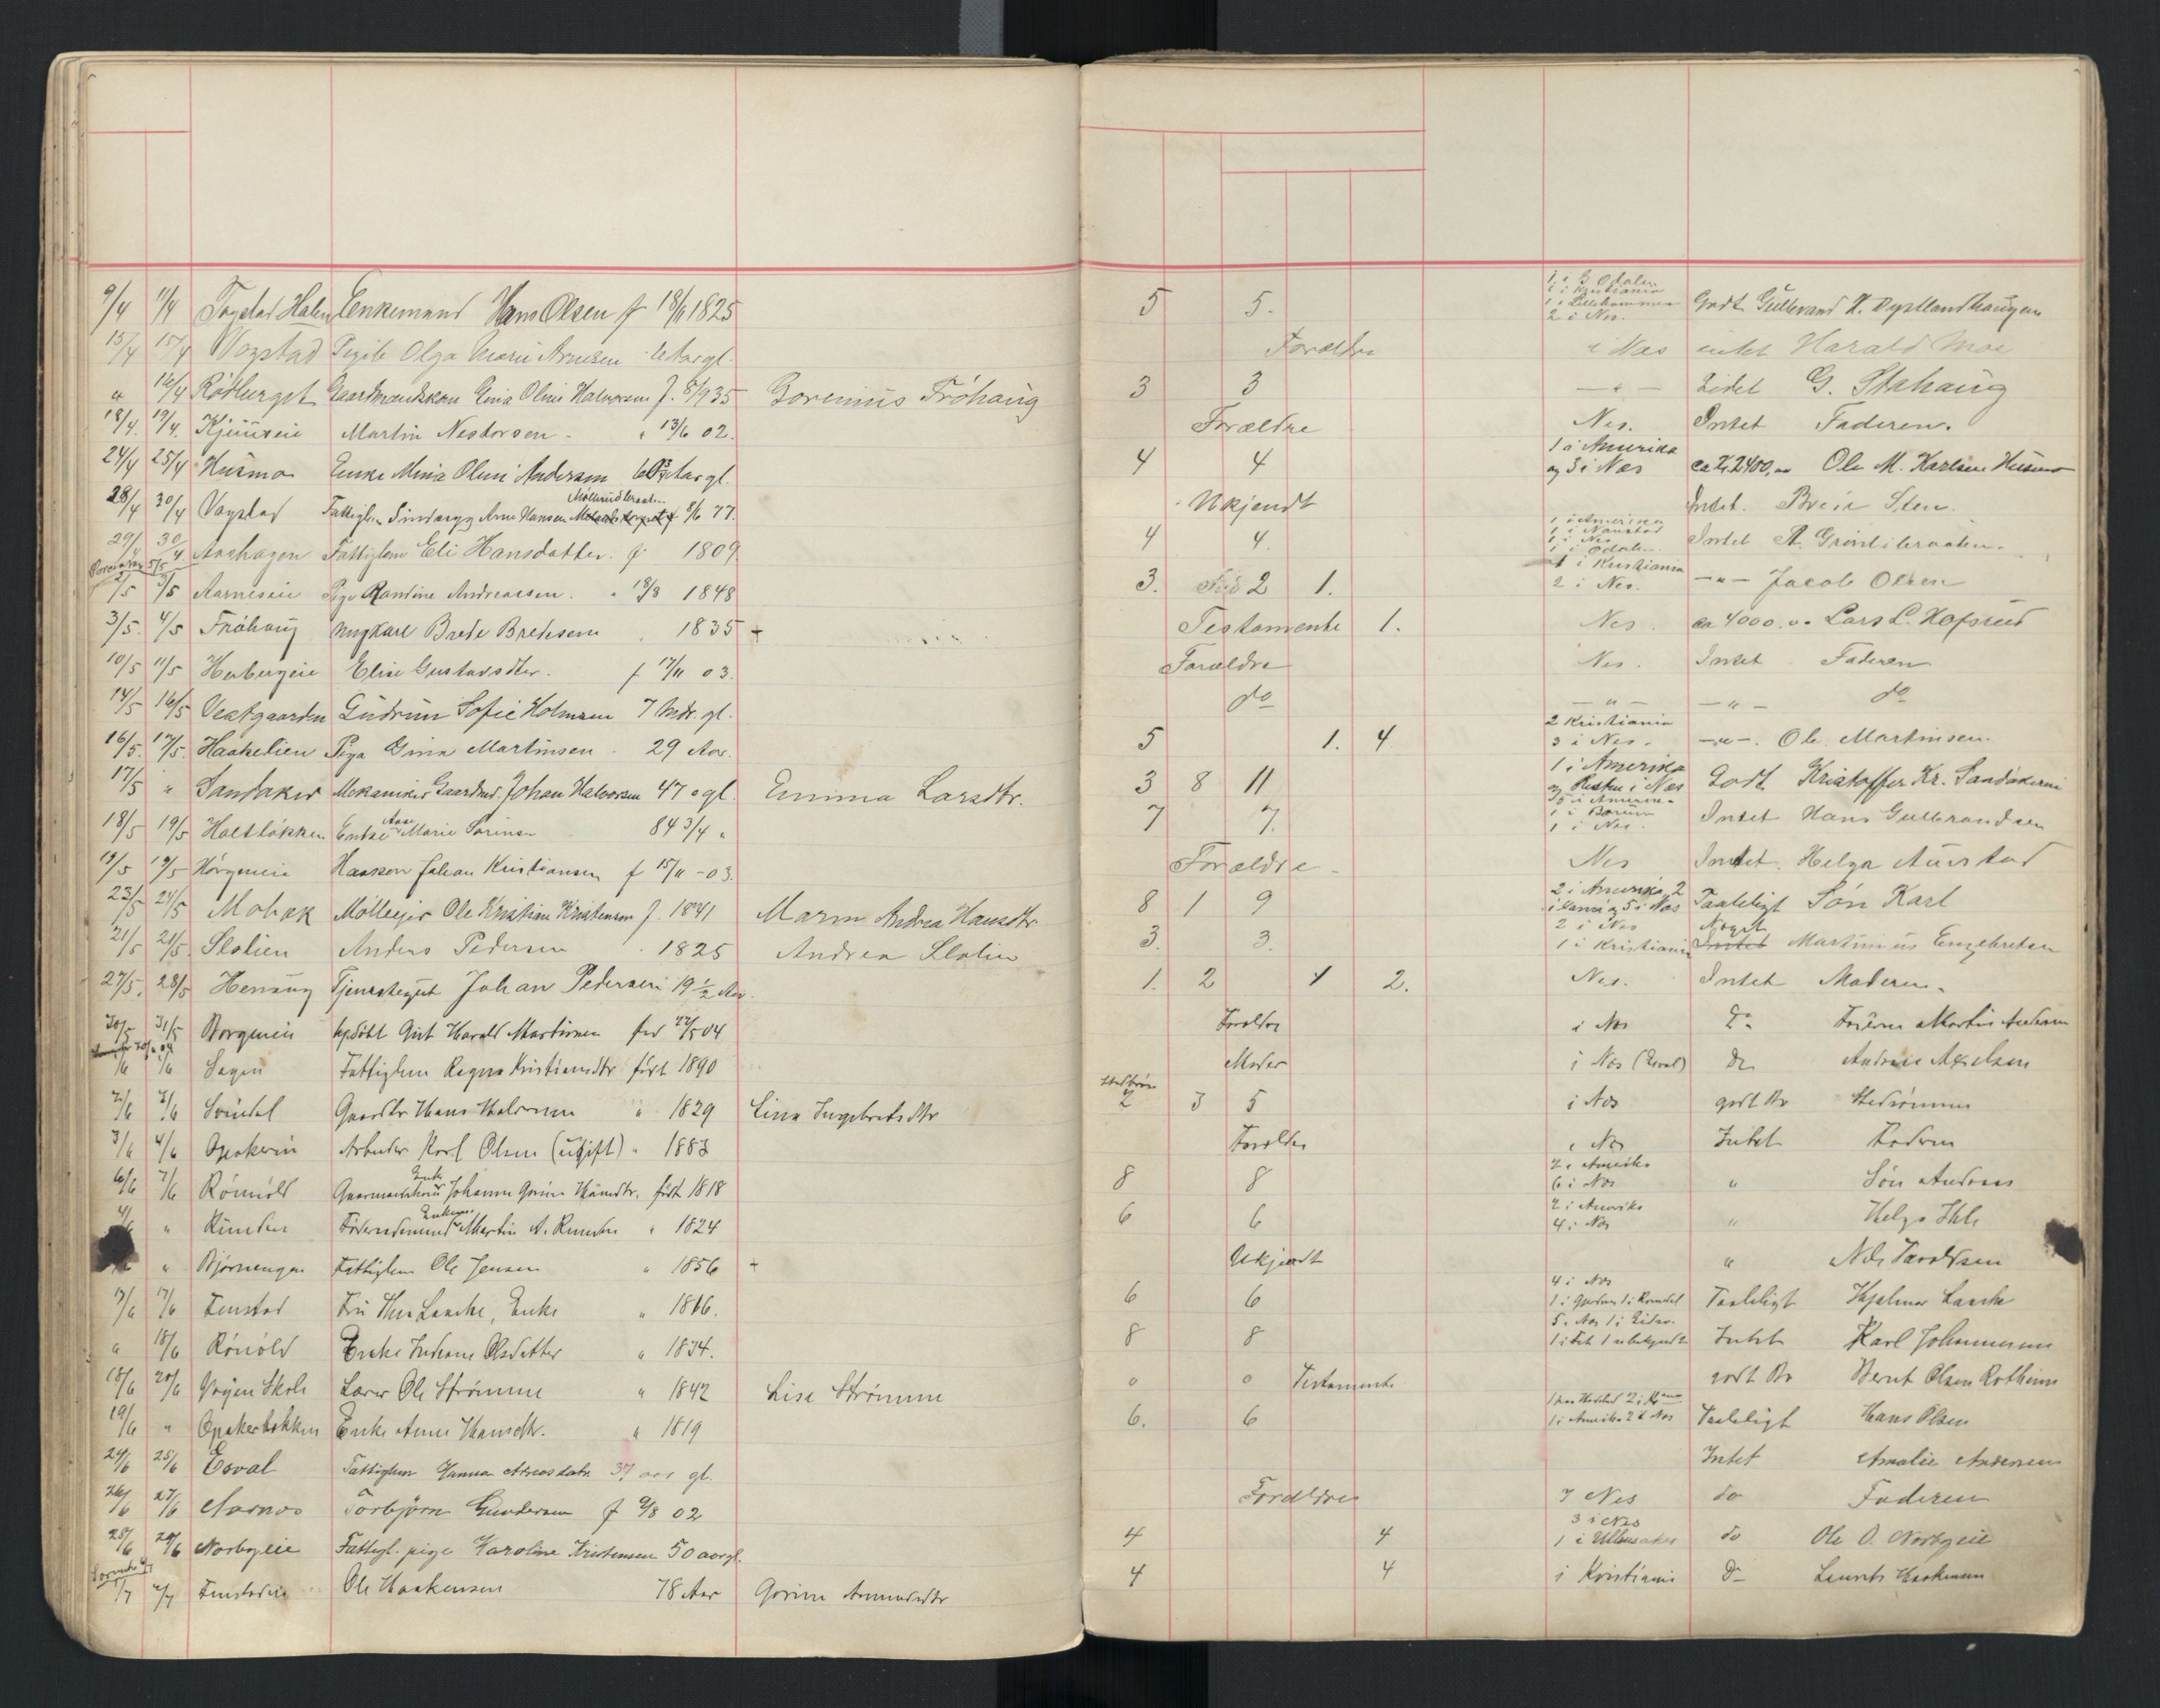 9/4 11/4 Togstad Halm Enkemand Hans Olsen f 18/11 1825 5 5. 1 i S Odalen 1 i Kristiania 1 i Lillehammer 2 i Nes. Godt Gullbrand H.
15/4 15/4 Vogstad Pigeb Olga Marie Arnesen Aar gl. Forældre i Nes intet Harald Moe
" 16/4 Rödberget Gaardmandskone Gina Oline Halvorsen f. 8/9 35 Gorenius Fröhaug 3 3 — " — Lidet G. Stahaug
18/4. 19/4. Martin Nestorsen " 13/6 02. Forældre Nes. Intet Faderen.
24/4 25/4 Husmo Enke Mina Oline Andersen Aar gl. 4 4 1 i Amerika og 3 i Nes ca Kr. 2400,00 Ole M. Karlsen Husmo
28/4 30/4 Vogstad Fattiglem Sindssyg Arne Hansen 8/6 77. Ukjendt Intet. Brede Steen.
29/4 30/4 Aashagen Fattiglem Eli Hansdatter. f. 1809 4 4. 1 i Amerika 1 i Nes 1 i Odalen. Intet A. Grönlibraaten.
2/5 3/5 Aarneseie Pige Randine Andreassen. " 18/3 1848 3. 2 1. 1 i Kristiania 2 i Nes. — " — Jacob Olsen
3/5. 4/5 Fröhaug Ungkarl Brede Bredesen 1835 + Testamente 1. Nes. ca 4000.00 Lars L. Hofsrud
10/5 11/5 Herbergeie Elise Gustavsdtr. f 17/11 03. Forældre Nes. Intet Faderen
14/5 16/5 Vestgaarden Gudrun Sofie Holmsen 7 Mdr. gl. do — " — — " — do
16/5. 17/5. Haakelien Pige Gina Martinsen 29 Aar. 5 1. 4 2 Kristiania 3 i Nes. — " —. Ole Martinsen.
17/5 " Sandaker Mekaniker Gaardmd. Johan Halvorsen 47 a gl. Emma Larsdtr. 3 8 11 1 i Amerika og Resten i Nes Godt Kristoffer Kr. Sandakereie
18/5 19/5 Holtlökken Enke Aase Marie Sörensen 84 3/4 " 7 7. 5 i Amerika 1 i Bærum 1 i Nes. Intet Hans Gulbrandsen
19/5 19/5 Haakon Johan Kristiansen f 15/11 - 03. Forældre Nes Intet. Helga Aurstad
23/5 24/5 Mohak Mölleeier Ole Kristian Kristensen f. 1841 Maren Andrea Hansdtr 8 1 9 2 i Amerika 2 i og 5 i Nes Taaleligt Sön Karl
21/5 21/5. Stolien Anders Pedersen 1825 Andrea Stolien 3. 3. 2 i Nes 1 i Kristiania Noget Intet Martinius Engebretsen
27/5. 28/5 Henaug Tjenestegut Johan Pedersen 19 1/2 Aar. 1. 2 1 2. Nes. Intet Moderen.
30/5 31/5 Gut Harald Martinsen fød 22/5 04 Forældre i Nes Do Martin
1/6 1/6 Sagen Fattiglem Ragna Kristiansdtr født 1890 Moder i Nes (Esval) Do Andrine Axelsen
2/6 2/6 Svindal Gaardbr Hans Halvorsen " 1829 Lina Ingebretsdtr 2 3 5 i Nes godt Bo Stedsönnen
3/6 4/6 Opakereie Arbeider Karl Olsen (ugift) " 1883 Forældre i Nes Intet Faderen
6/6 7/6 Rönold Enke Johanne Hansdtr. født 1818 8 8 2 i Amerika 6 i Nes " Sön Andreas
" Runden Föderaadsmand Enkem. Martin A. Runden " 1824 6 6 2 i Amerika 4 i Nes " Helge
" Bjørnengen Fattiglem Ole Jensen " 1856 + Ukjendt " Nils Taraldsen
13/6 17/6 Finstad Fru Laache, Enke " 1816. 6 6 4 i Nes 1 i 1 i Romedal Taaleligt Hjalmar Laache
" 18/6 Rönold Enke Olsdatter " 1834. 8 8 5 i Nes 1 i Eidsv. 1 ubekjendt Intet Karl Johannesen
18/6 20/6 Vøien Skole Lærer Ole Strømme " 1842 Lise Strømme 0 0 Testamente godt Bo Bernt Olsen Rotheim
19/6 " Opakerbakken Enke Anne Hansdtr. " 1819 6. 6 1 i Amerika 2 i Nes Taaleligt Hans Olsen
24/6 25/6 Esval Fattiglem Hanna 37 aar gl. Intet Amalie Andersen
26/6 27/6 Aarnes Torbjørn Gundersen f 9/8 02 Forældre i Nes do Faderen
28/6 29/6 Norbyeie Fattigl. pige Karoline Kristensen 50 aar gl. 4 4 3 i Nes 1 i Ullensaker do Ole O. Norbyeie
1/7 2/7 Finstadeie Ole Haakensen 78 Aar Gorine Amundsdtr 4 4 i Kristiania Do Laurits Haakensen